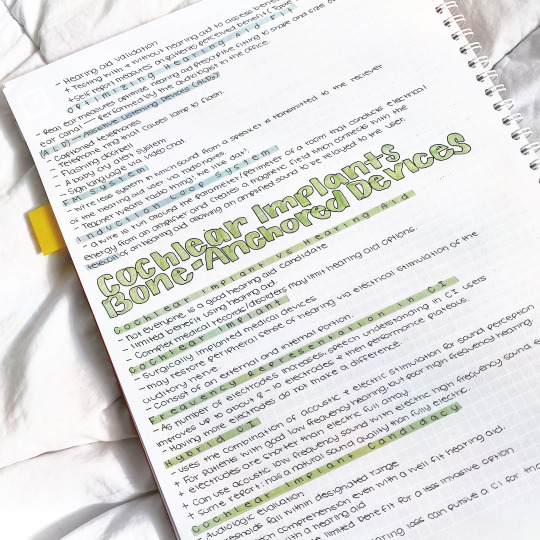 - Hearing aid validation
+ Testing with + without hearing aid to assess benefit
+ Self report measures on patients perceived benefit
Optimizing Hearing Aid Fit
- Real ear measures optimise hearing aid prescriptive fitting to shape and size of
ear canal - performed by the audiologist in the office.
(ALD) - Assistive Listening Devices (ALDs)
- Captioned telephones
- Telephone ring that causes lamp to flash.
- Flashing doorbell
- A baby cry alert system
- Sign language via video chat
FM System
- wireless system in which sound from a speaker is transmitted to the receiver
of the hearing aid user via radio waves
- Teacher wears radio thing! We like dat!
Induction Loop System
- a wire is run around the parameter/perimeter of a room that conducts electrical
energy from an amplifier and creates a magnetic field which connects with the
telecoil of an hearing aid allowing an amplified sound to be relayed to the user.
Cochlear Implants
Bone-Anchored Devices
Cochlear Implant vs Hearing Aid
- not everyone is a good hearing aid candidate
- limited benefit using hearing aid.
- Complex medical records/disorders may limit hearing aid options.
Cochlear Implant
- Surgically implanted medical devices
- may restore peripheral sense of hearing via electrical stimulation of the
auditory nerve.
- Consist of an external and internal portion.
Frequency Representation in C.I
- As number of electrodes increases, speech understanding in C.I users
improves up to about 8-10 electrodes + then performance plateaus.
- Having more electrodes do not make a difference.
Hybrid CI
- uses the combination of acoustic + electric stimulation for sound perception
+ For patients with good low frequency hearing, but poor high frequency hearing.
+ electrodes are shorter than electric full array
+ can use acoustic low frequency sound with electric high frequency sound
+ some report: has a natural sound quality than fully electric.
Cochlear Implant Candidacy
- Audiologic evaluation
thresholds fall within designated range
speech comprehension even with a well fit hearing aid.
with a hearing aid
limited benefit for a less invasive option
hearing loss can pursue a CI for